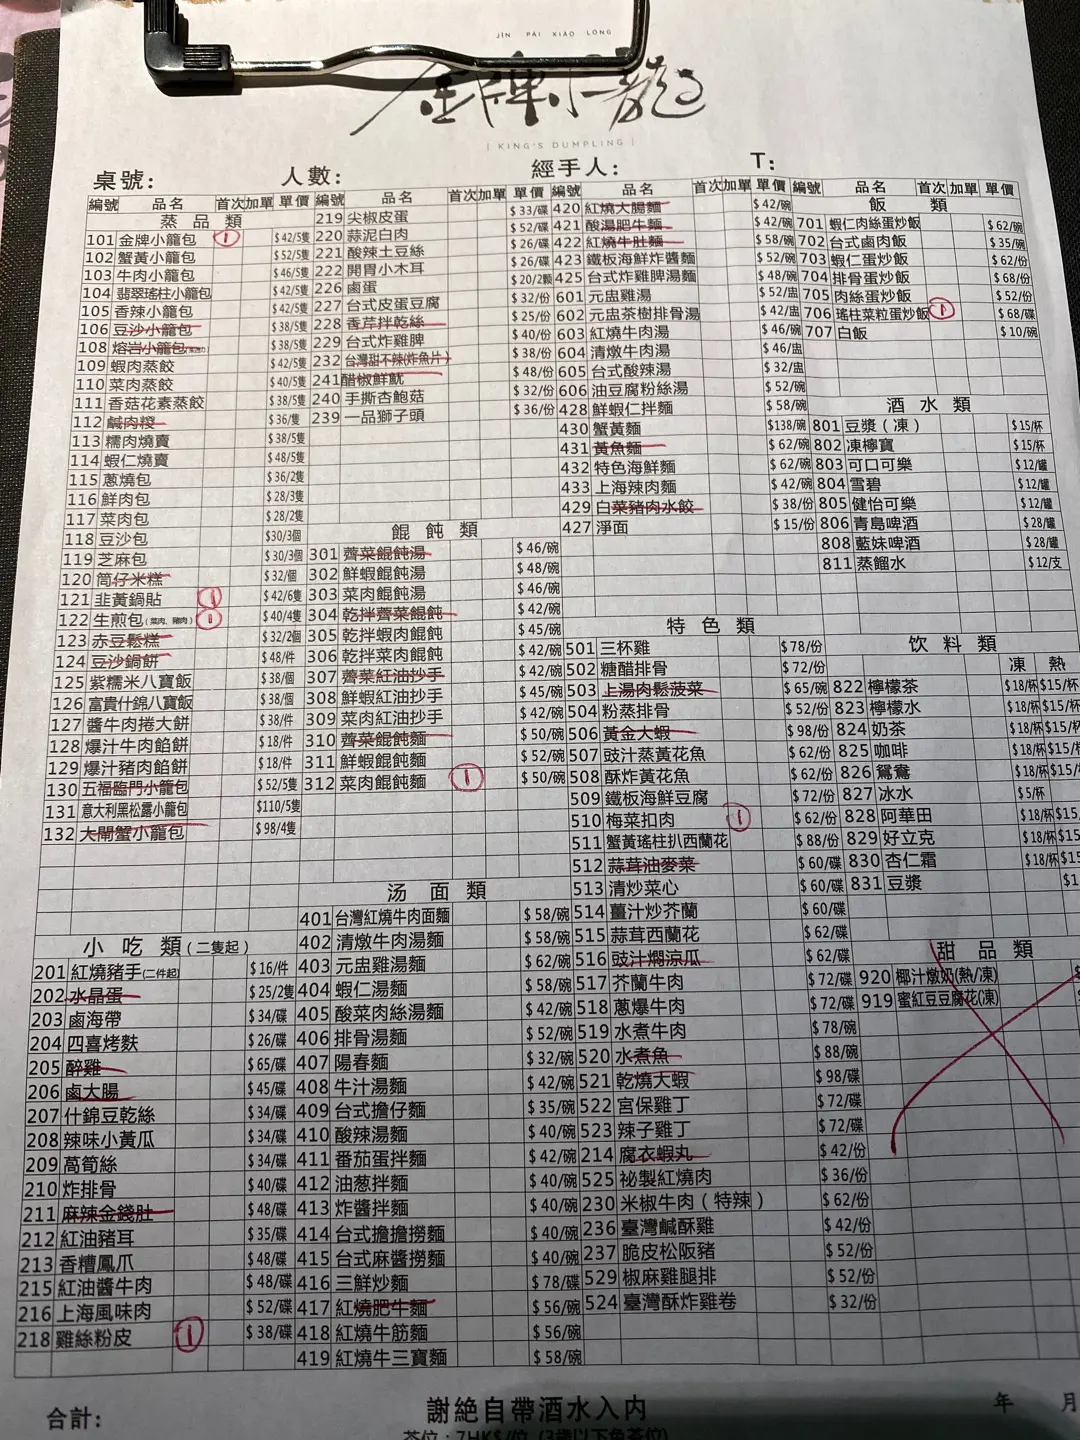 JIN PAI XIAO LONG
金牌小籠
| KING'S DUMPLING |
桌號: 人數: 經手人: T:
編號 品名 首次 加單 單價
蒸品類
101 金牌小籠包 ① $42/5隻
102 蟹黃小籠包 $52/5隻
103 牛肉小籠包 $46/5隻
104 翡翠瑤柱小籠包 $42/5隻
105 香辣小籠包 $42/5隻
106 豆沙小籠包 $38/5隻
108 熔岩小籠包 $38/5隻
109 蝦肉蒸餃 $42/5隻
110 菜肉蒸餃 $40/5隻
111 香菇花素蒸餃 $38/5隻
112 鹹肉糉 $36/隻
113 糯肉燒賣 $38/5隻
114 蝦仁燒賣 $48/5隻
115 蔥燒包 $36/2隻
116 鮮肉包 $28/3隻
117 菜肉包 $28/2隻
118 豆沙包 $30/3個
119 芝麻包 $30/3個
120 筒仔米糕 $32/個
121 韭黃鍋貼 ① $42/6隻
122 生煎包(菜肉、豬肉) ① $40/4隻
123 赤豆鬆糕 $32/2個
124 豆沙鍋餅 $48/件
125 紫糯米八寶飯 $38/個
126 富貴什錦八寶飯 $38/個
127 醬牛肉捲大餅 $38/件
128 爆汁牛肉餡餅 $18/件
129 爆汁豬肉餡餅 $18/件
130 五福臨門小籠包 $52/5隻
131 意大利黑松露小籠包 $110/5隻
132 大閘蟹小籠包 $98/4隻
小吃類(二隻起)
201 紅燒豬手(二件起) $16/件
202 水晶蛋 $25/2隻
203 鹵海帶 $34/碟
204 四喜烤麩 $26/碟
205 醉雞 $65/碟
206 鹵大腸 $45/碟
207 什錦豆乾絲 $34/碟
208 辣味小黃瓜 $34/碟
209 萵筍絲 $34/碟
210 炸排骨 $40/碟
211 麻辣金錢肚 $48/碟
212 紅油豬耳 $35/碟
213 香糟鳳爪 $48/碟
215 紅油醬牛肉 $48/碟
216 上海風味肉 $52/碟
218 雞絲粉皮 ① $38/碟
編號 品名 首次 加單 單價
219 尖椒皮蛋 $33/碟
220 蒜泥白肉 $52/碟
221 酸辣土豆絲 $26/碟
222 開胃小木耳 $26/碟
226 鹵蛋 $20/2顆
227 台式皮蛋豆腐 $32/份
228 香芹拌乾絲 $25/份
229 台式炸雞脾 $40/份
232 台灣甜不辣(炸魚片) $38/份
241 醋椒鮮魷 $48/份
240 手撕杏鮑菇 $32/份
239 一品獅子頭 $36/份
餛飩類
301 薺菜餛飩湯 $46/碗
302 鮮蝦餛飩湯 $48/碗
303 菜肉餛飩湯 $46/碗
304 乾拌薺菜餛飩 $42/碗
305 乾拌蝦肉餛飩 $45/碗
306 乾拌菜肉餛飩 $42/碗
307 薺菜紅油抄手 $42/碗
308 鮮蝦紅油抄手 $45/碗
309 菜肉紅油抄手 $42/碗
310 薺菜餛飩麵 $50/碗
311 鮮蝦餛飩麵 $52/碗
312 菜肉餛飩麵 ① $50/碗
汤面類
401 台灣紅燒牛肉面麵 $58/碗
402 清燉牛肉湯麵 $58/碗
403 元盅雞湯麵 $62/碗
404 蝦仁湯麵 $58/碗
405 酸菜肉絲湯麵 $42/碗
406 排骨湯麵 $52/碗
407 陽春麵 $32/碗
408 牛汁湯麵 $42/碗
409 台式擔仔麵 $35/碗
410 酸辣湯麵 $40/碗
411 番茄蛋拌麵 $42/碗
412 油葱拌麵 $40/碗
413 炸醬拌麵 $40/碗
414 台式擔擔撈麵 $40/碗
415 台式麻醬撈麵 $40/碗
416 三鮮炒麵 $78/碟
417 紅燒肥牛麵 $56/碗
418 紅燒牛筋麵 $56/碗
419 紅燒牛三寶麵 $58/碗
編號 品名 首次 加單 單價
420 紅燒大腸麵 $42/碗
421 酸湯肥牛麵 $42/碗
422 紅燒牛肚麵 $58/碗
423 鐵板海鮮炸醬麵 $52/碗
425 台式炸雞脾湯麵 $48/碗
601 元盅雞湯 $52/盅
602 元盅茶樹排骨湯 $42/盅
603 紅燒牛肉湯 $46/碗
604 清燉牛肉湯 $46/盅
605 台式酸辣湯 $32/盅
606 油豆腐粉絲湯 $52/碗
428 鮮蝦仁拌麵 $58/碗
430 蟹黃麵 $138/碗
431 黃魚麵 $62/碗
432 特色海鮮麵 $62/碗
433 上海辣肉麵 $42/碗
429 白菜豬肉水餃 $38/份
427 淨面 $15/份
特色類
501 三杯雞 $78/份
502 糖醋排骨 $72/份
503 上湯肉鬆菠菜 $65/碗
504 粉蒸排骨 $52/份
506 黃金大蝦 $98/份
507 豉汁蒸黃花魚 $62/份
508 酥炸黃花魚 $62/份
509 鐵板海鮮豆腐 $72/份
510 梅菜扣肉 ① $62/份
511 蟹黃瑤柱扒西蘭花 $88/份
512 蒜茸油麥菜 $60/碟
513 清炒菜心 $60/碟
514 薑汁炒芥蘭 $60/碟
515 蒜茸西蘭花 $62/碟
516 豉汁燜涼瓜 $62/碟
517 芥蘭牛肉 $72/碟
518 蔥爆牛肉 $72/碟
519 水煮牛肉 $78/碗
520 水煮魚 $88/碗
521 乾燒大蝦 $98/碟
522 宮保雞丁 $72/碟
523 辣子雞丁 $72/碟
214 腐衣蝦丸 $42/份
525 祕製紅燒肉 $36/份
230 米椒牛肉(特辣) $62/份
236 臺灣鹹酥雞 $42/份
237 脆皮松阪豬 $52/份
529 椒麻雞腿排 $52/份
524 臺灣酥炸雞卷 $32/份
編號 品名 首次 加單 單價
飯類
701 蝦仁肉絲蛋炒飯 $62/碗
702 台式鹵肉飯 $35/碗
703 蝦仁蛋炒飯 $62/份
704 排骨蛋炒飯 $68/份
705 肉絲蛋炒飯 $52/份
706 瑤柱菜粒蛋炒飯 ① $68/碟
707 白飯 $10/碗
酒水類
801 豆漿(凍) $15/杯
802 凍檸寶 $15/杯
803 可口可樂 $12/罐
804 雪碧 $12/罐
805 健怡可樂 $12/罐
806 青島啤酒 $28/罐
808 藍妹啤酒 $28/罐
811 蒸餾水 $12/支
饮料類
凍 熱
822 檸檬茶 $18/杯 $15/杯
823 檸檬水 $18/杯 $15/杯
824 奶茶 $18/杯 $15/杯
825 咖啡 $18/杯 $15/
826 鴛鴦 $18/杯 $15/
827 冰水 $5/杯
828 阿華田 $18/杯 $15
829 好立克 $18/杯 $15
830 杏仁霜 $18/杯 $15
831 豆漿 $1
甜品類
920 椰汁燉奶(熱/凍)
919 蜜紅豆豆腐花(凍)
合計: 謝絶自帶酒水入内 年 月
茶位:7HK$/位 (3歲以下免茶位)